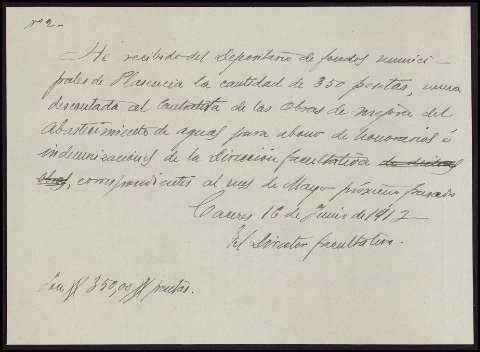 nº 2.-
He recibido del Depositario de fondos munici-
pales de Plasencia la cantidad de 350 pesetas, suma
descontada al Contratista de las obras de mejora del
abastecimiento de aguas para abono de honorarios é
indemnizaciones de la Dirección facultativa de dichas
obras, correspondientes al mes de Mayo próximo pasado
Caceres 16 de Junio de 1912
El Director facultativo.
Son # 350,00 # pesetas.